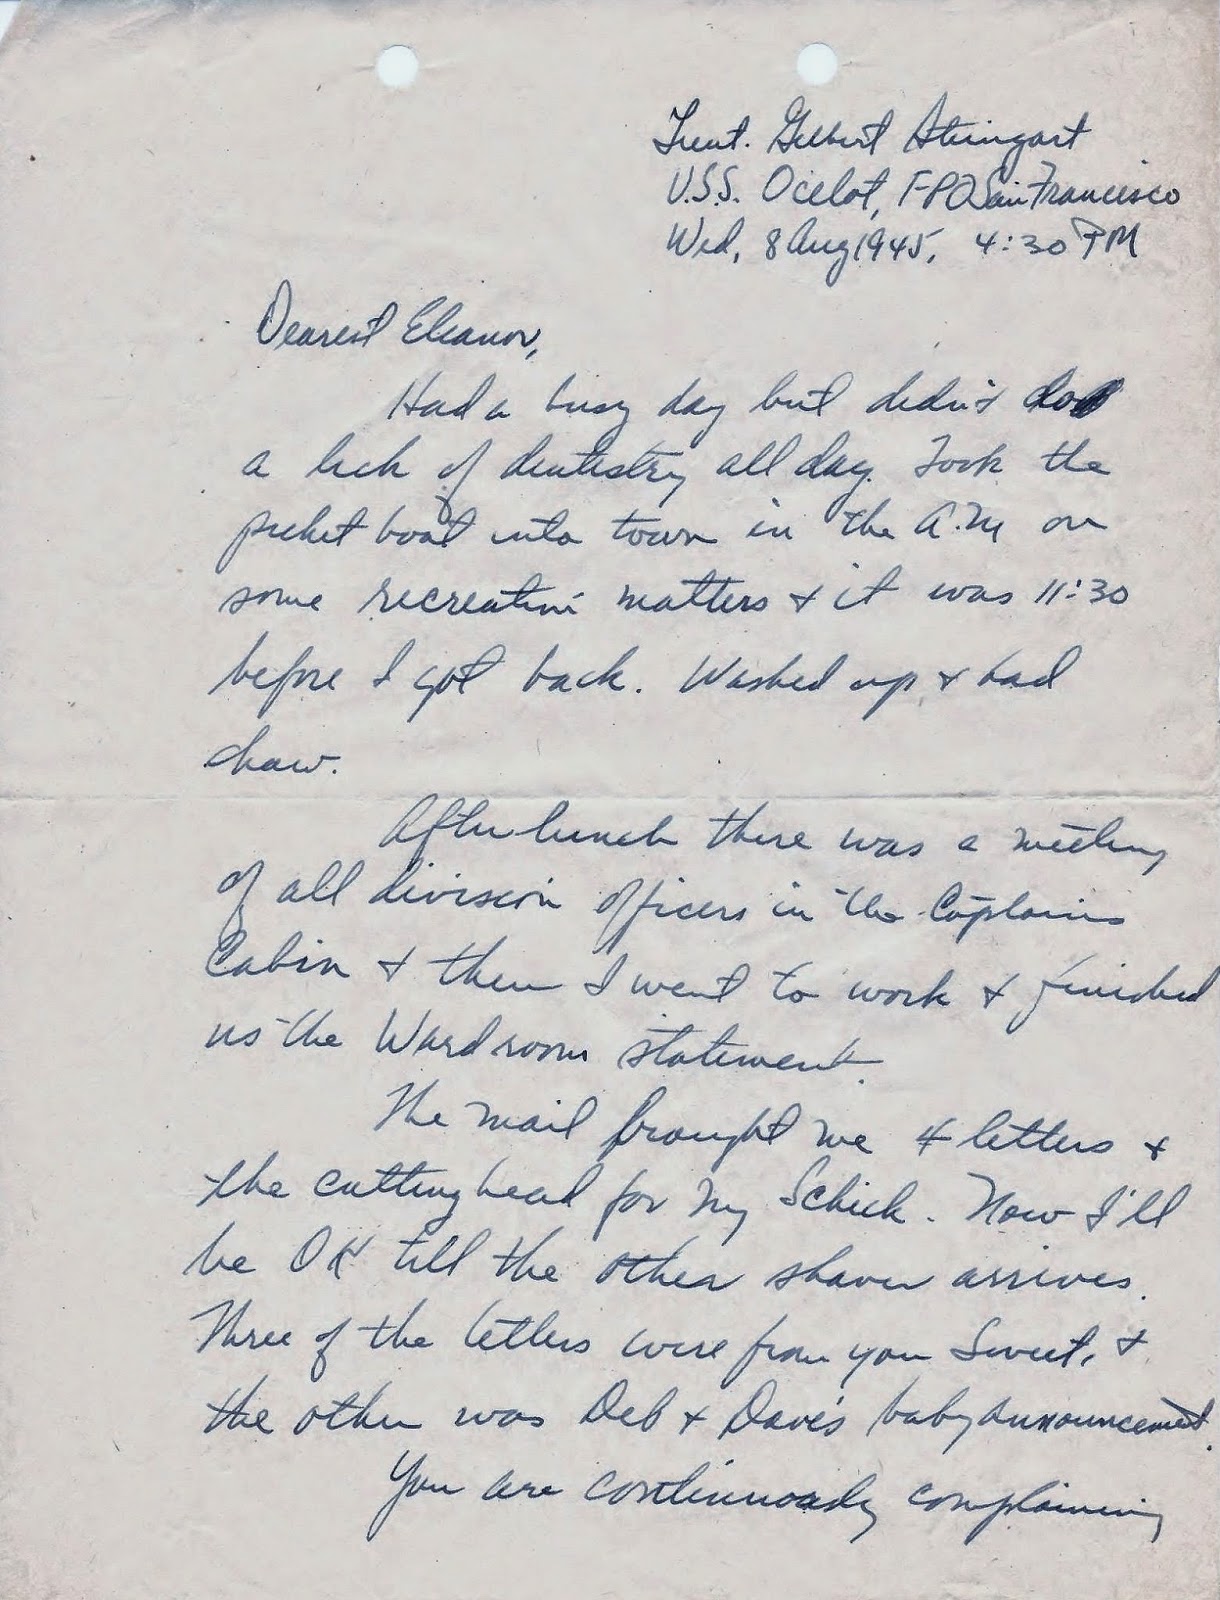 Lieut. Gilbert Steingart
U.S.S. Ocelot, FPO San Francisco
Wed, 8 Aug 1945, 4:30 PM
Dearest Eleanor,
Had a busy day but didn't do
a lick of dentistry all day. Took the
picket boat into town in the A.M on
some recreation matters & it was 11:30
before I got back. Washed up & had
chow.
After lunch there was a meeting
of all division officers in the Captains
Cabin & then I went to work & finished
up the Wardroom statement.
The mail brought me 4 letters &
the cutting head for my Schick. Now I'll
be OK till the other shaver arrives.
Three of the letters were from you Sweet, &
the other was Deb & Dave's baby announcement.
You are continuously complaining